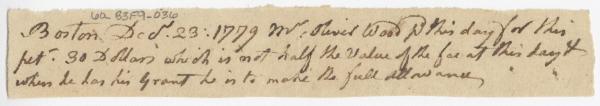 6a 83F9-036
Boston Decr. 23: 1779 Mr. Oliver Wood pd this day for this
pet. 30 Dollars which is not half the Value of the fee at this day &
when he has his Grant he is to make the full allowance